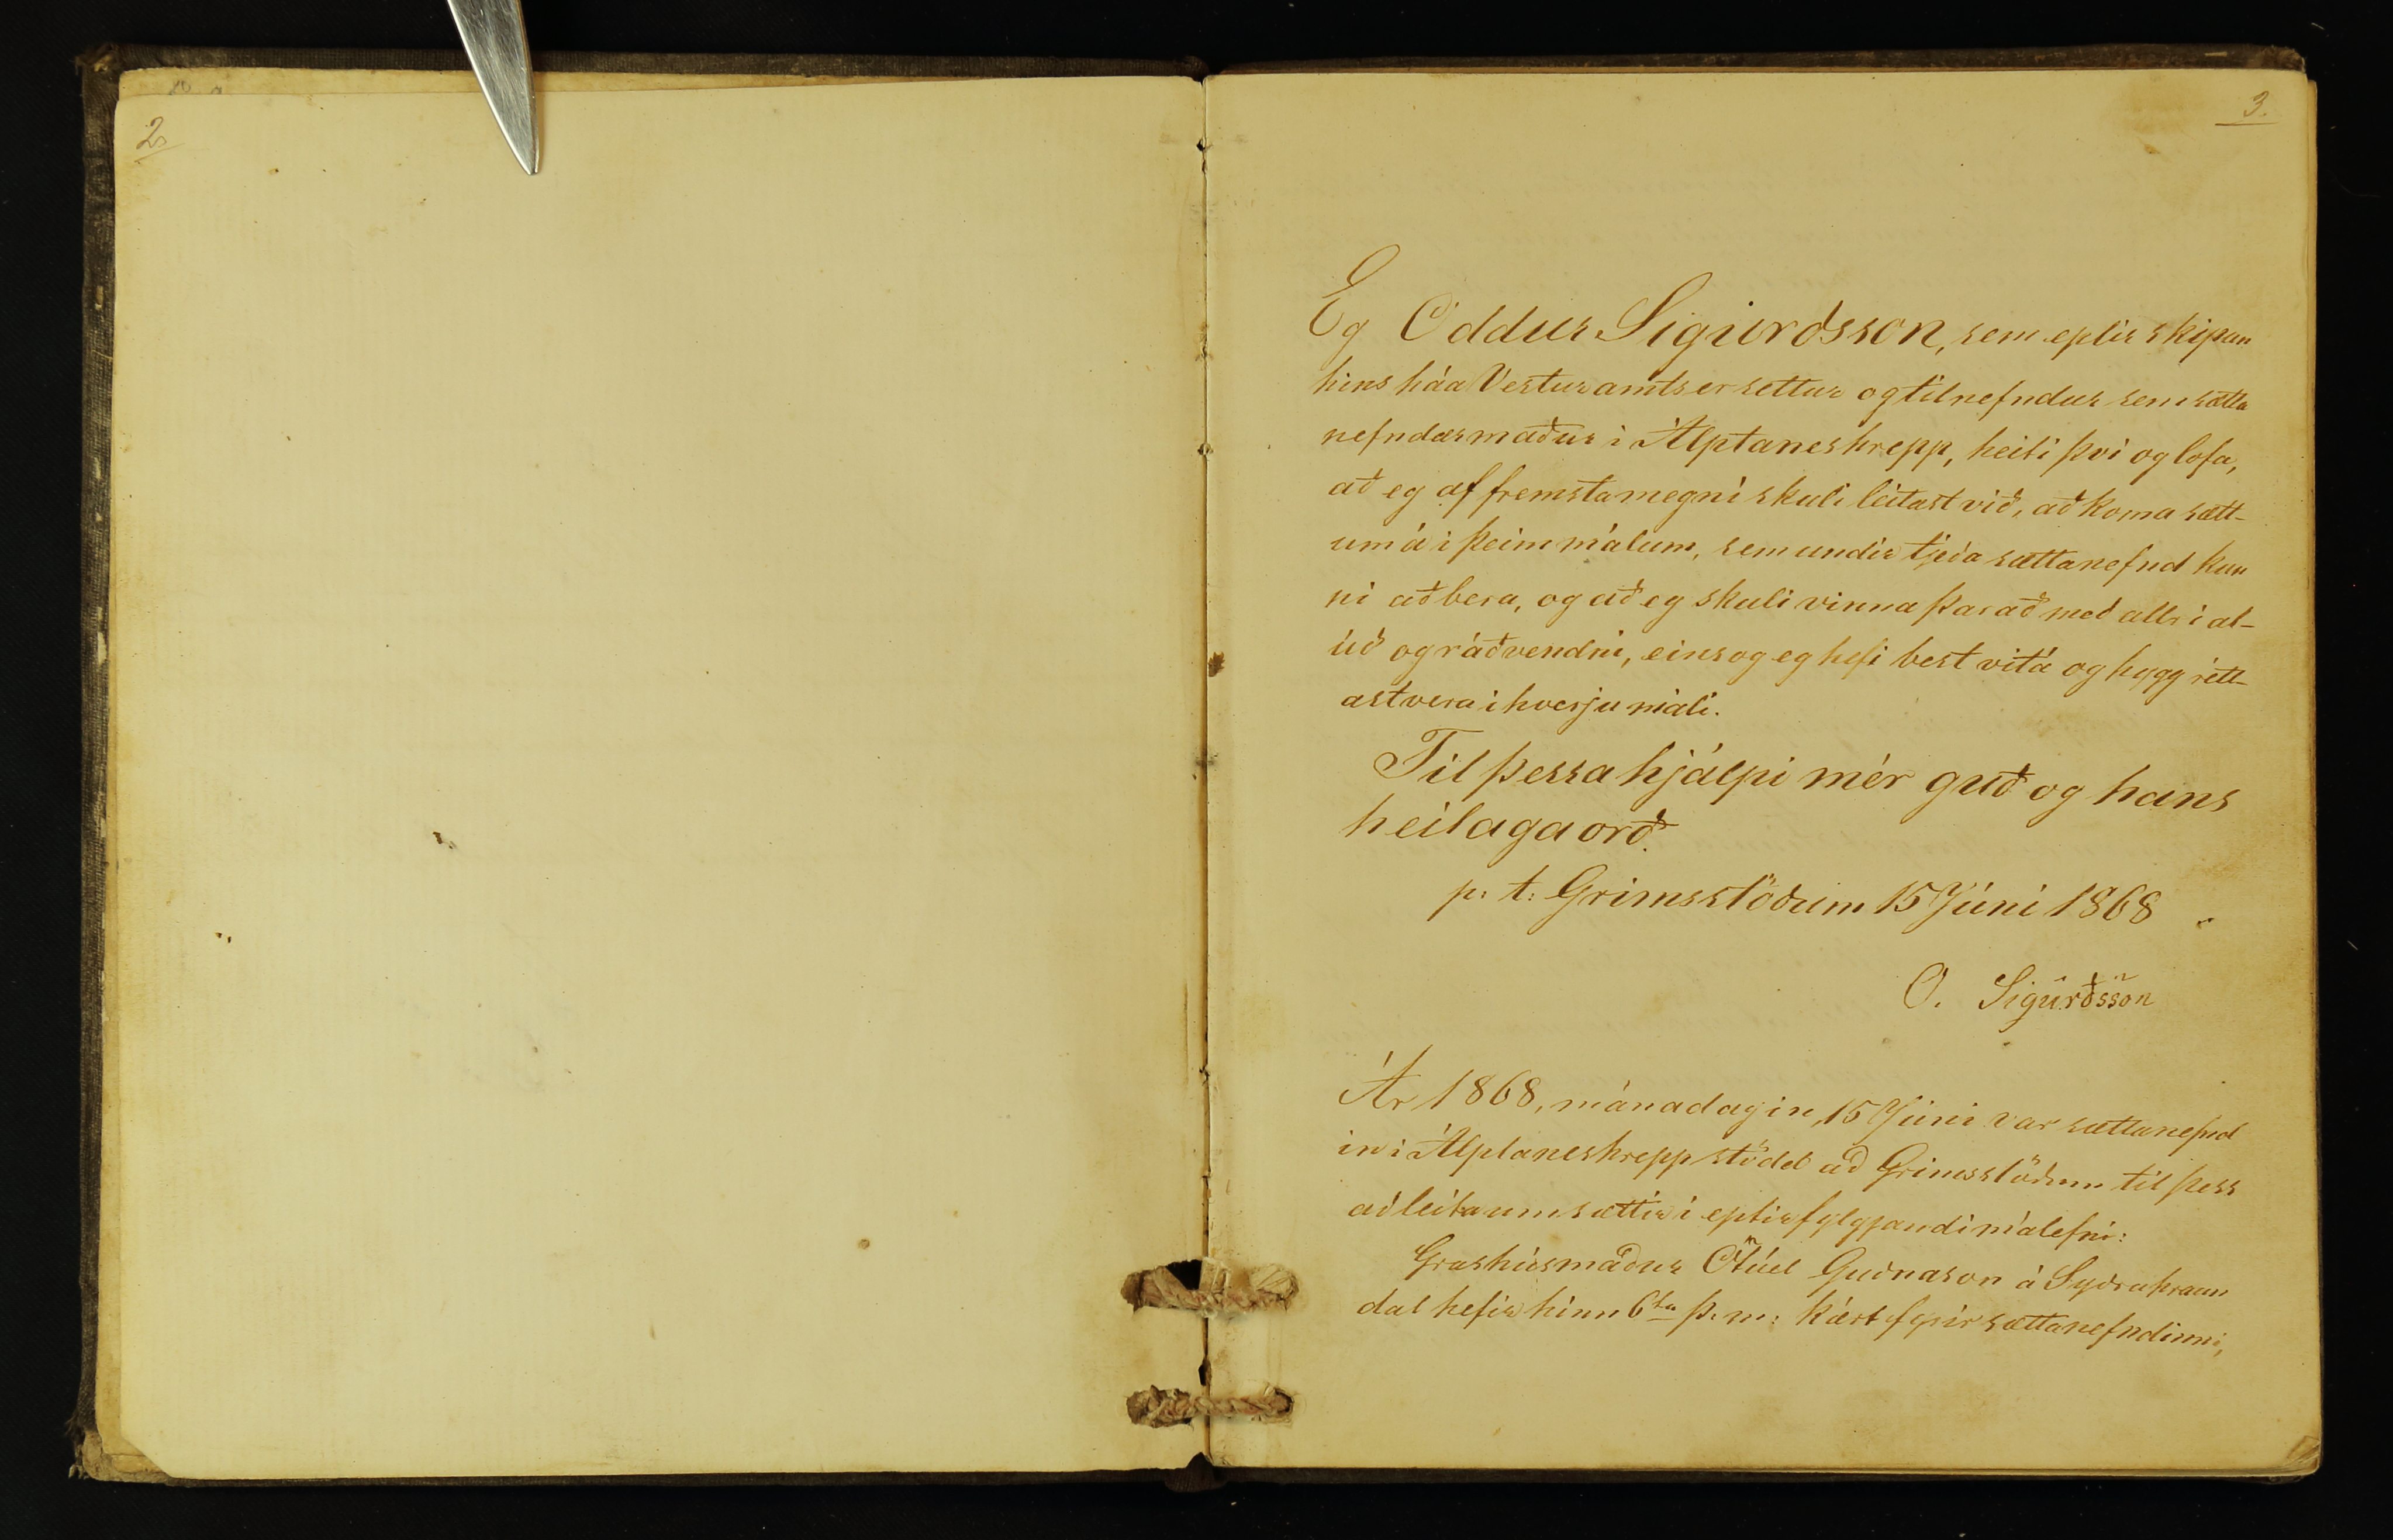 2.
3.
Eg Oddur Sigurðsson, sem eptir skipun
hins háa Vesturamts er settur og tilnefndur sem sætta
nefndarmaður i Álptaneshrepp, heiti því og lofa,
að eg af fremsta megni skuli leitast við, að koma sætt-
um á i þeim málum, sem undir tjeða sættanefnd kun
ni að bera, og að eg skuli vinna þar að með allri al-
úð og ráðvendni, eins og eg hefi best vit á og hygg rétt-
ast vera i hverju máli.
Til þessa hjálpi mér guð og hans
heilaga orð.
p: t: Grimsstöðum 15 Júni 1868
O. Sigurðsson
Ár 1868, mánadagin 15 Júni var sættanefnd
in i Álptaneshrepp stödd að Grimsstöðum til þess
að leita um sættir i eptirfylgjandi málefni:
Grashúsmaður Ótúel Guðnason á Syðrahraun
dal hefir hinn 6ta þ. m: kært fyrir sættanefndinni,